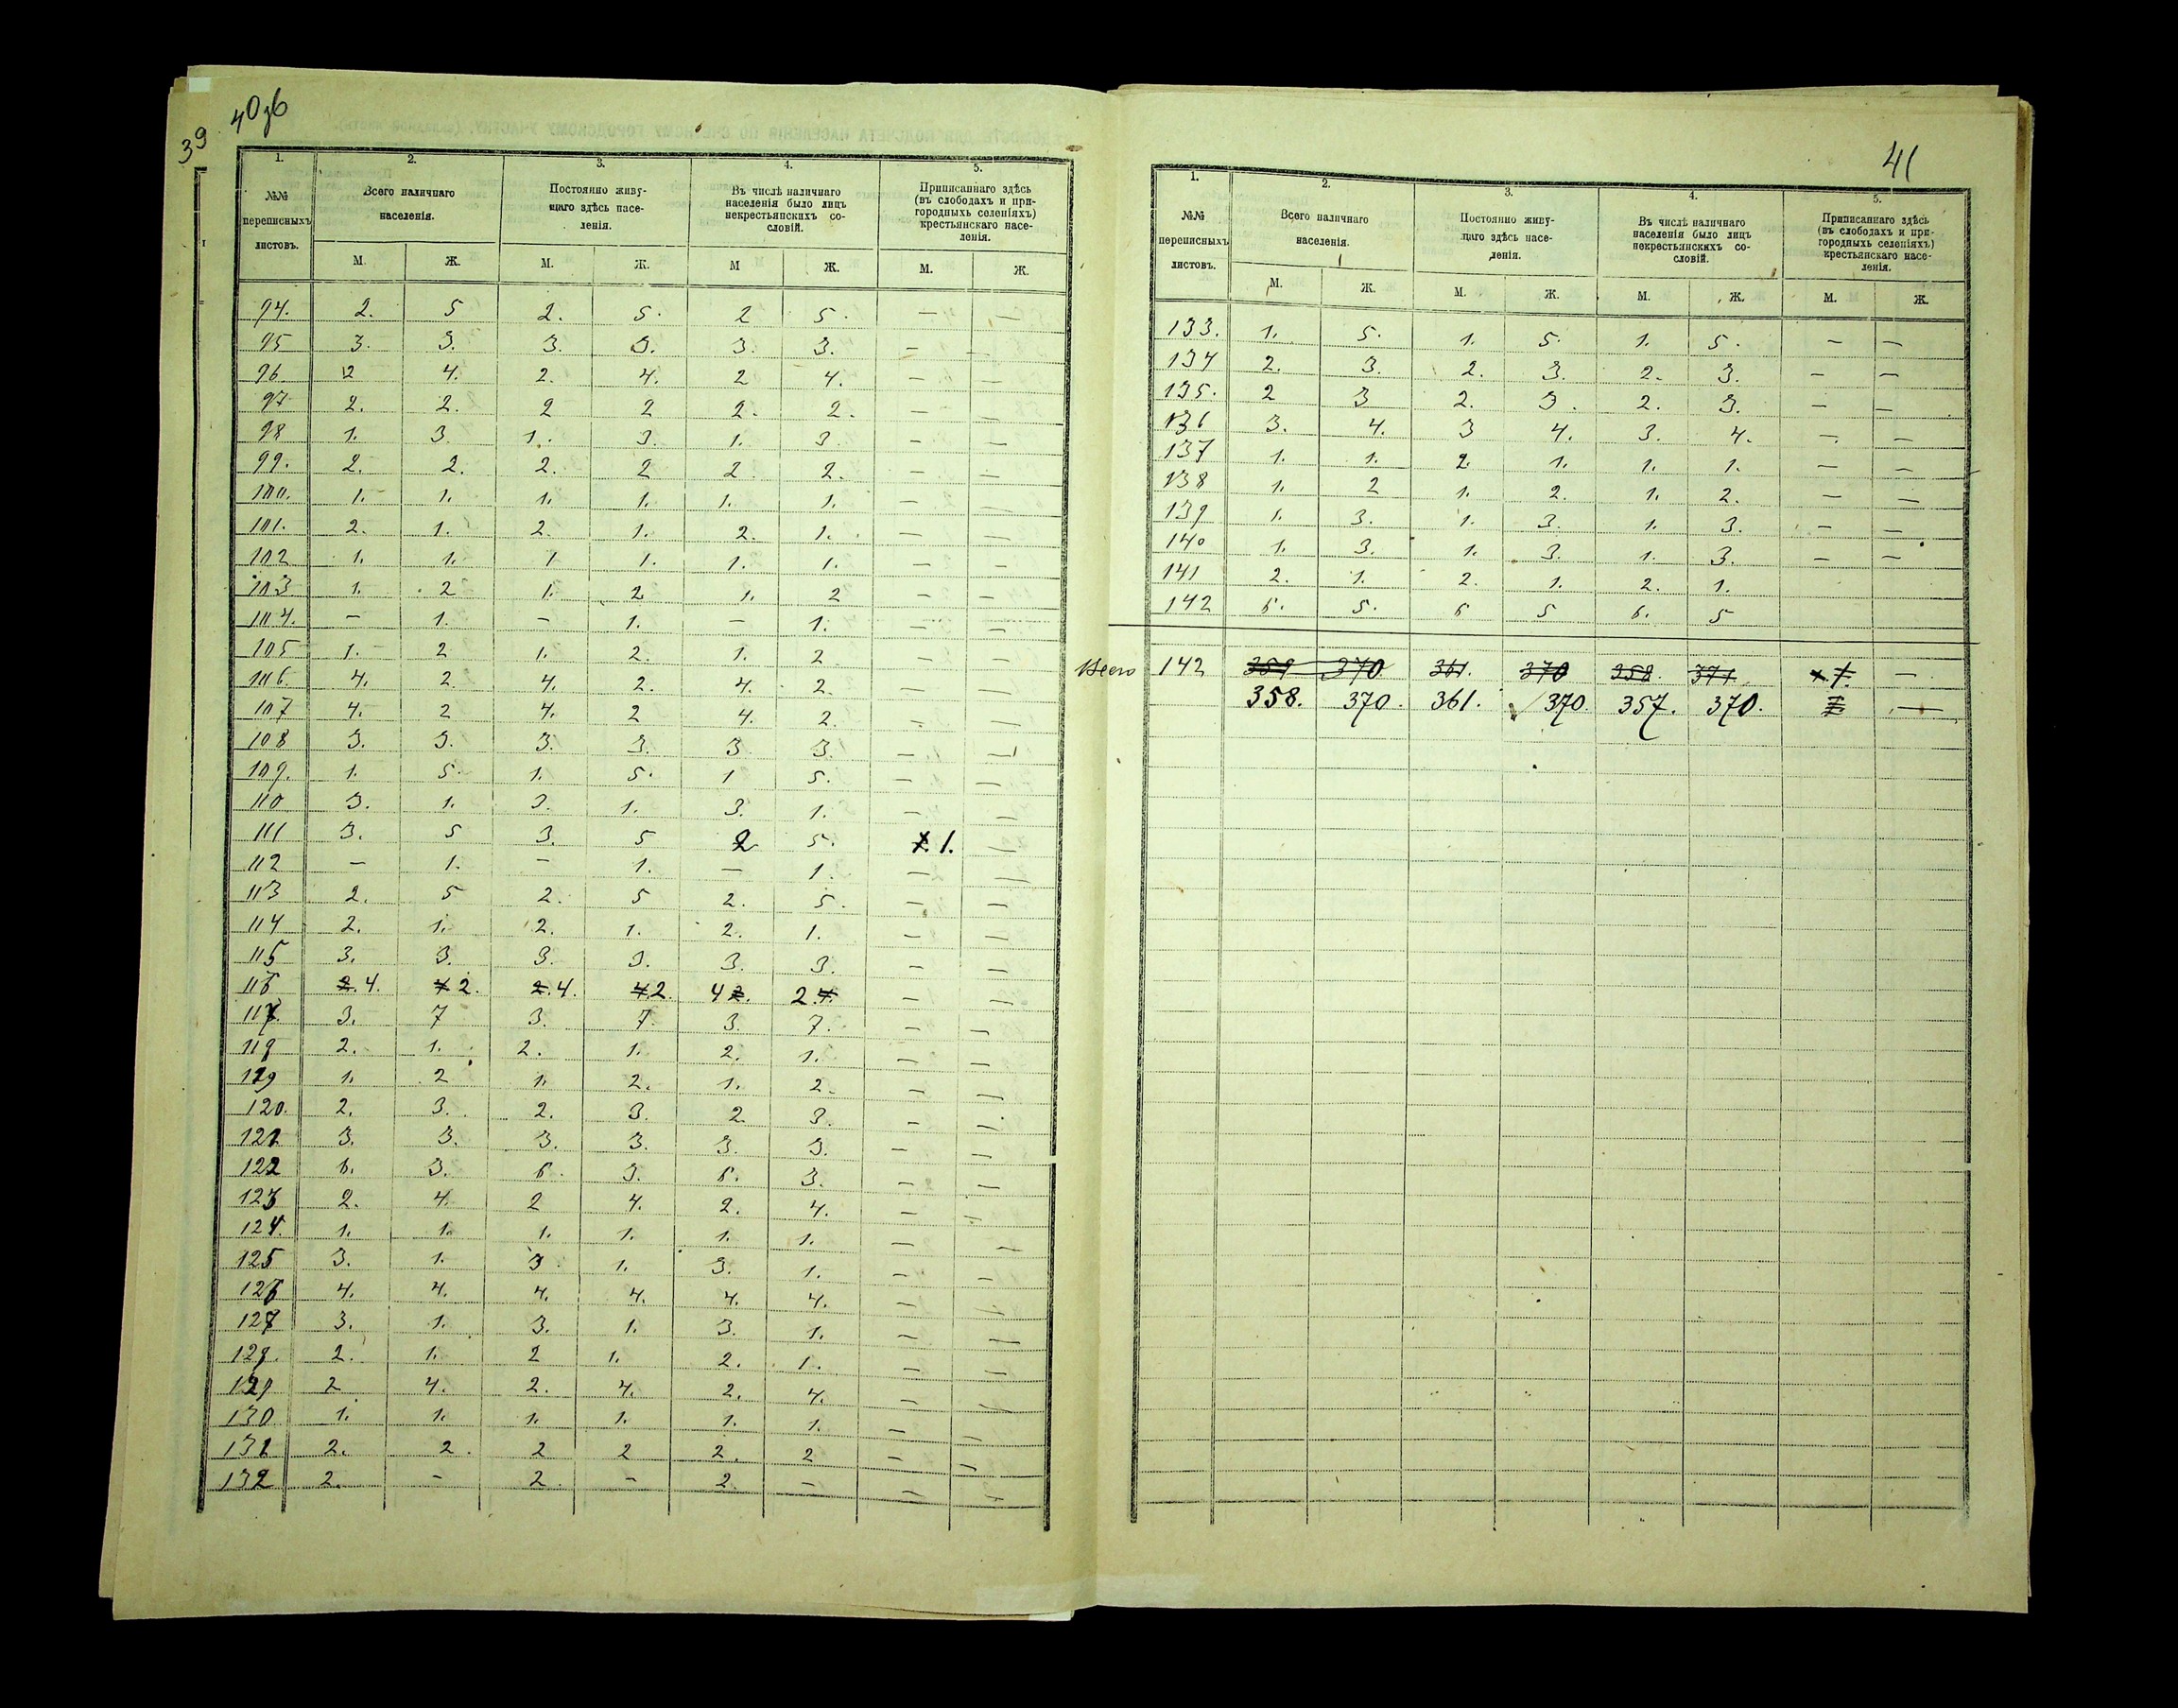 40 об
39
1. 2. 3. 4. 5.
№№ переписныхъ листовъ.
Всего наличнаго населенія.
Постоянно живущаго здѣсь населенія.
Въ числѣ наличнаго населенія было лицъ некрестьянскихъ сословій.
Приписаннаго здѣсь (въ слободахъ и пригородныхъ селеніяхъ) крестьянскаго населенія.
М. Ж. М. Ж. М Ж. М. Ж.
94. 2. 5 2. 5. 2 5. — —
95 3. 3. 3. 3. 3. 3. — —
96. 2 4. 2. 4. 2 4. — —
97 2. 2. 2 2 2. 2. — —
98 1. 3 1. 3. 1. 3. — —
99. 2. 2. 2. 2 2. 2. — —
100. 1. 1. 1. 1. 1. 1. — —
101. 2. 1. 2. 1. 2. 1. — —
102 1. 1. 1 1. 1. 1. — —
103 1. 2 1. 2. 1. 2 — —
104. — 1. — 1. — 1. — —
105 1. 2 1. 2. 1. 2 — —
106. 4. 2. 4. 2. 4. 2. — —
107 4. 2 4. 2 4. 2. — —
108 3. 3. 3. 3. 3. 3. — —
109. 1. 5. 1. 5. 1 5. — —
110 3. 1. 3. 1. 3. 1. — —
111 3. 5 3. 5 2 5. 1. —
112 — 1. — 1. — 1. — —
113 2. 5 2. 5 2. 5. — —
114 2. 1. 2. 1. 2. 1. — —
115 3. 3. 3. 3. 3. 3. — —
116 2. 4. 4 2. 2. 4. 4. 2. 4 2. 2. 4. — —
117. 3. 7 3. 7. 3. 7. — —
118 2. 1. 2. 1. 2. 1. — —
119 1. 2 1. 2. 1. 2. — —
120. 2. 3. 2. 3. 2. 3. — —
121 3. 3. 3. 3. 3. 3. — —
122 6. 3. 6. 3. 6. 3. — —
123 2. 4. 2 4. 2. 4. — —
124. 1. 1. 1. 1. 1. 1. — —
125 3. 1. 3. 1. 3. 1. — —
126 4. 4. 4. 4. 4. 4. — —
127 3. 1. 3. 1. 3. 1. — —
128. 2. 1. 2 1. 2. 1. — —
129 2 4. 2. 4. 2. 4. — —
130 1. 1. 1. 1. 1. 1. — —
131 2. 2. 2 2 2. 2 — —
132 2. — 2. — 2. — — —
41
1. 2. 3. 4. 5.
№№ переписныхъ листовъ.
Всего наличнаго населенія.
Постоянно живущаго здѣсь населенія.
Въ числѣ наличнаго населенія было лицъ некрестьянскихъ сословій.
Приписаннаго здѣсь (въ слободахъ и пригородныхъ селеніяхъ) крестьянскаго населенія.
М. Ж. М. Ж. М. Ж. М. Ж.
133. 1. 5. 1. 5. 1. 5. — —
134 2. 3. 2. 3. 2. 3. — —
135. 2 3 2. 3. 2. 3. — —
136 3. 4. 3 4. 3. 4. — —
137 1. 1. 2. 1. 1. 1. — —
138 1. 2 1. 2. 1. 2. — —
139 1. 3. 1. 3. 1. 3. — —
140 1. 3. 1. 3. 1. 3. — —
141 2. 1. 2. 1. 2. 1.
142 6. 5. 6 5 6. 5
Всего 142 359 370 361. 370 358. 371. 1. —
358. 370. 361. 370. 357. 370. —